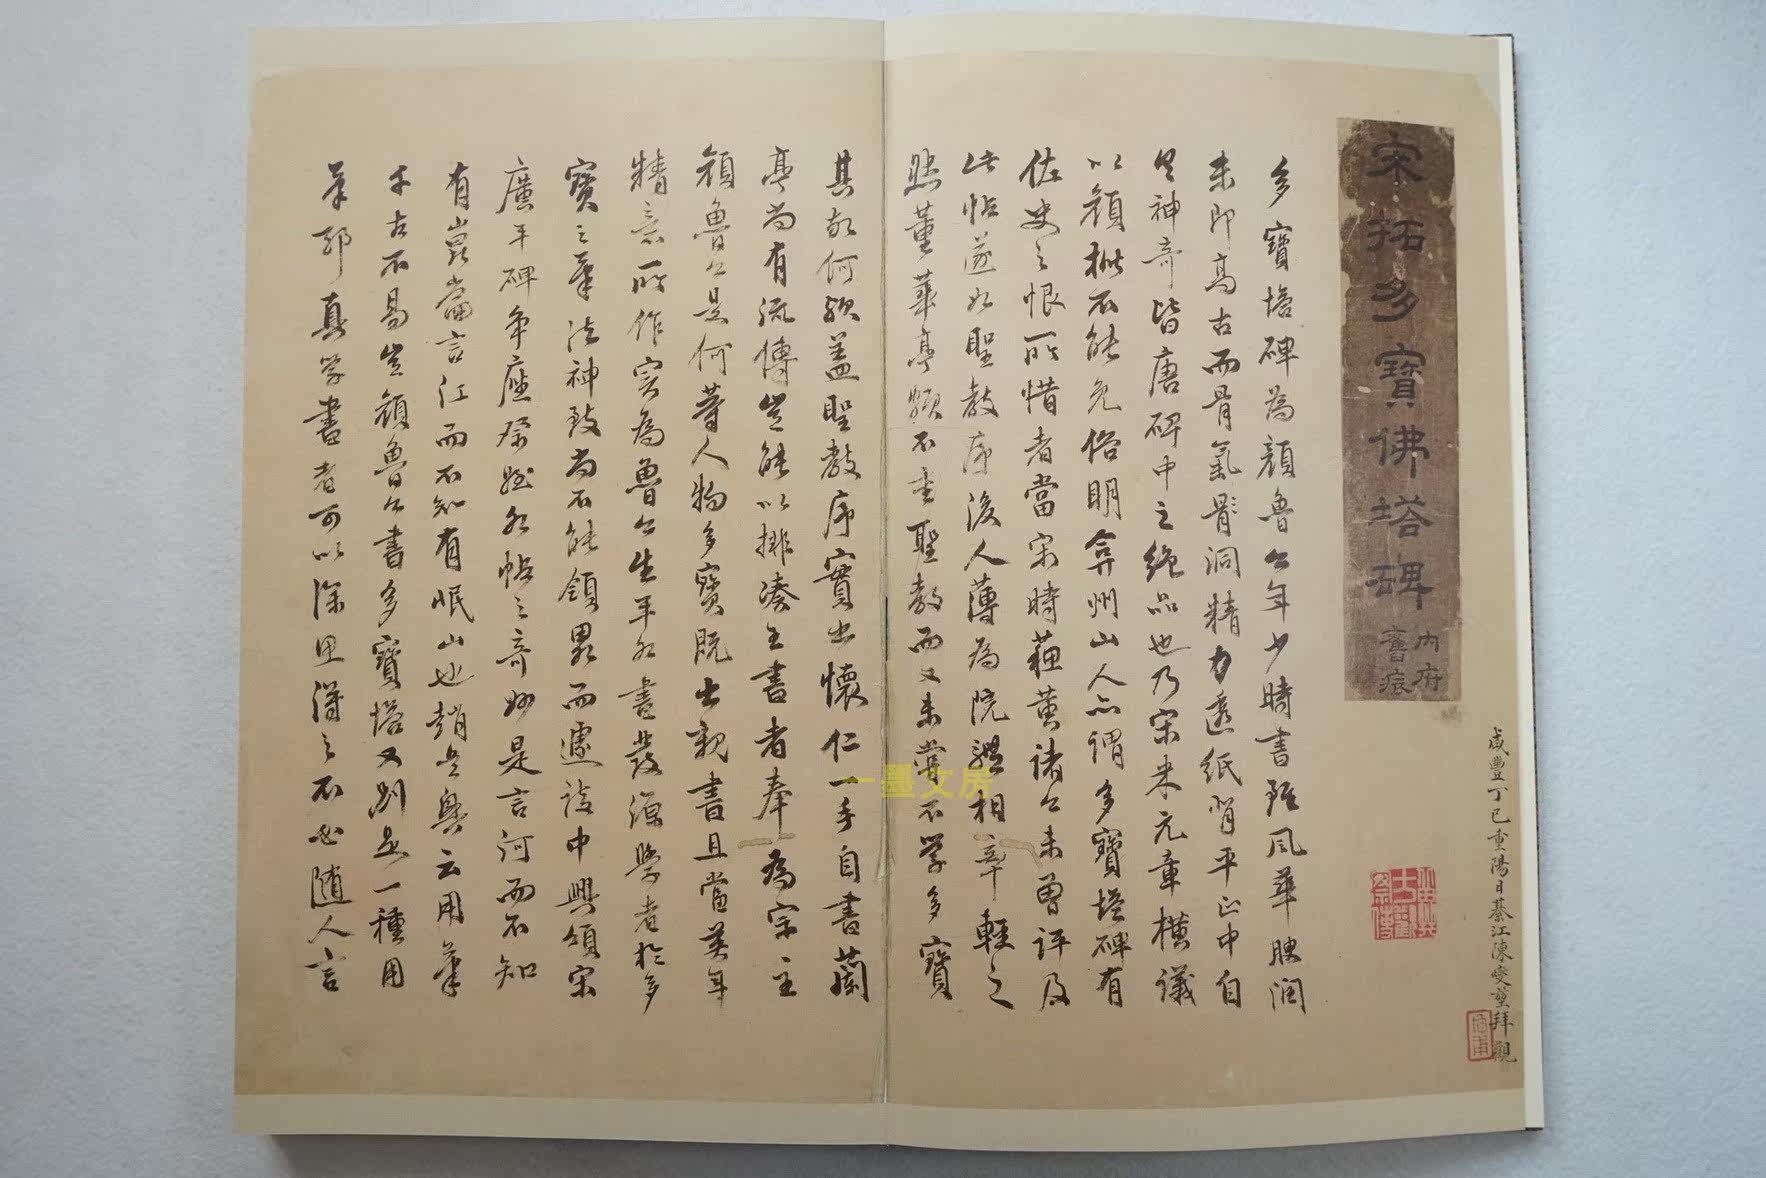 宋拓多寶佛塔碑
內府
舊痕
咸豐丁巳重陽日綦江陳變堃拜觀
多寶塔碑為顏魯公年少時書雖風華腴潤
未即高古而骨氣髟洞精力透紙背平正中自
具神奇皆唐碑中之絕品也乃宋米元章橫議
以顏楷不能免俗明弇州山人亦謂多寶塔碑有
佐史之恨所惜者當宋時蘇黃諸公未曾評及
此帖遂如聖教序後人薄為院體相率輕之
然董華亭頻不書聖教而又未嘗不學多寶
其故何歟蓋聖教序實出懷仁一手自書蘭
亭尚有流傳豈能以排湊王書者奉為宗主
顏魯公是何等人物多寶既出親書且當英年
精意所作實為魯公生平楷書發源學者於多
寶之筆法神致尚不能領略而遽談中興頌宋
廣平碑爭座祭姪各帖之奇妙是言河而不知
有崑崙言江而不知有岷山也趙吳興云用筆
千古不易豈顏魯公書多寶塔又別是一種用
筆耶真學書者可以深思得之不必隨人言
一墨文房